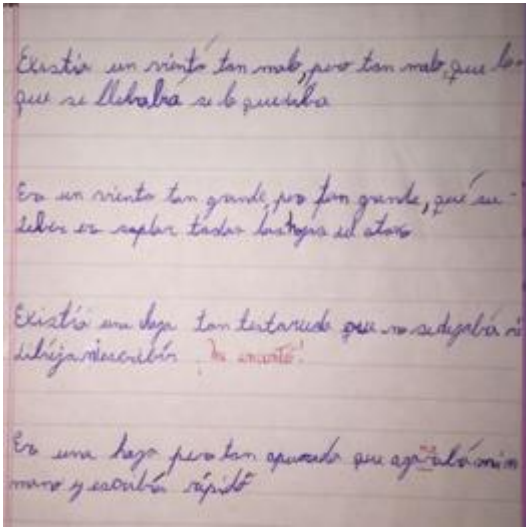 Existía un viento tan malo, pero tan malo, que lo
que se llebaba se lo quedaba
Era un viento tan grande, pero tan grande, que su
deber er soplar todas las hojas del otoño
Existía una hoja tan testaruda que no se dejaba ni
dibujar ni escribir Me encantó!
Era una hoja pero tan apurada que agarraba mi
mano y escribía rápido